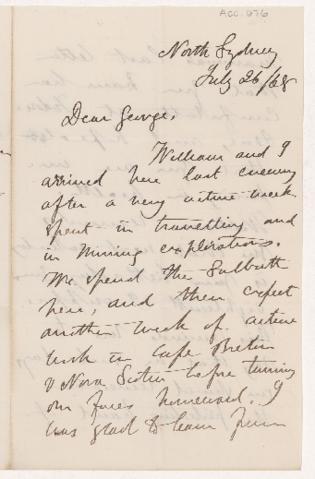 Acc. 876
North Sydney
July 26/68
Dear George,
William and I
arrived here last evening
after a very active week
spent in travelling and
in mining explorations.
We spend the Sabbath
here, and then expect
another week of active
work in Cape Breton
& Nova Scotia before turning
our faces homeward. I
was glad to learn from